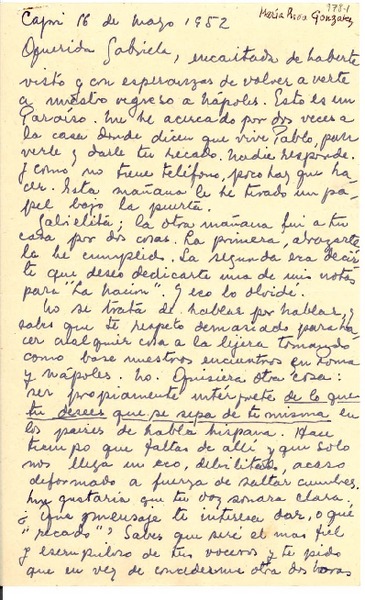 Capri 16 de mayo 1952
María Rosa González
978-1
Querida Gabriela, encantada de haberte
visto y con esperanzas de volver a verte
a nuestro regreso a Nápoles. Esto es un
Paraíso. Me he acercado por dos veces a
la casa donde dicen que vive Pablo, para
verle y darle tu recado. Nadie responde.
Y como no tiene teléfono, poco hay que ha-
cer. Esta mañana le he tirado un pa-
pel bajo la puerta.
Gabielita; la otra mañana fui a tu
casa por dos cosas. La primera, abrazarte
la he cumplido. La segunda era decir-
te que deseo dedicarte una de mis notas
para "La Nación". Y eso lo olvidé.
No se trata de hablar por hablar, y
sabes que te respeto demasiado para ha-
cer cualquier cosa a la lijera tomando
como base nuestros encuentros en Roma
y Nápoles. No. Quisiera otra cosa:
ser propiamente intérprete de lo que
tu desees que se sepa de ti misma en
los países de habla hispana. Hace
tiempo que faltas de allí y que solo
nos llega un eco, debilitado, acaso
deformado a fuerza de saltar cumbres.
Me gustaría que tu voz sonara clara.
¿Que mensaje te interesa dar, o qué
"recado"? Sabes que seré el mas fiel
y escrupuloso de tus voceros y te pido
que en vez de concederme otra dos horas